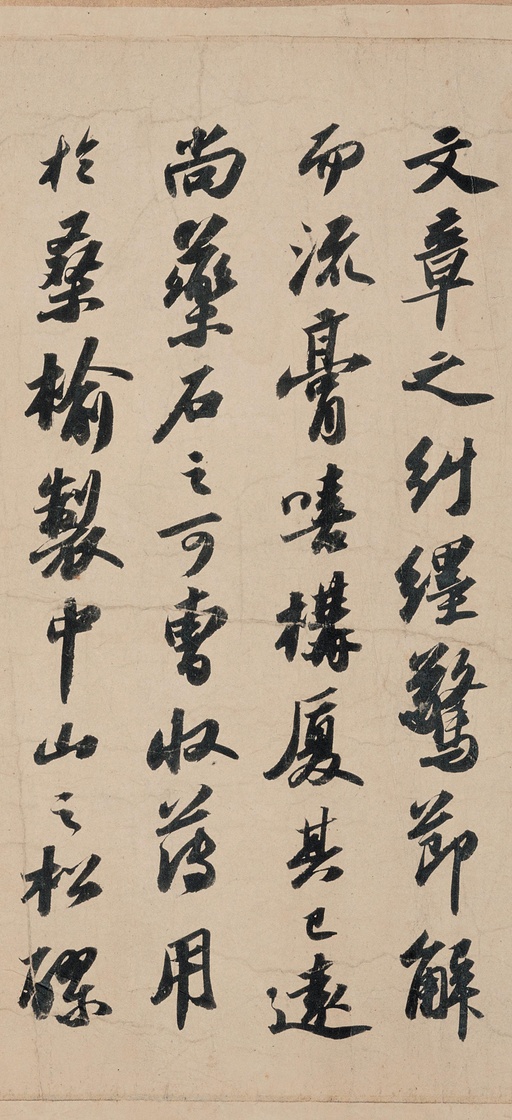 文章之糾纆驚節解
而流膏嘻構厦其已遠
尚藥石之可曹收薄用
於桑榆製中山之松醪